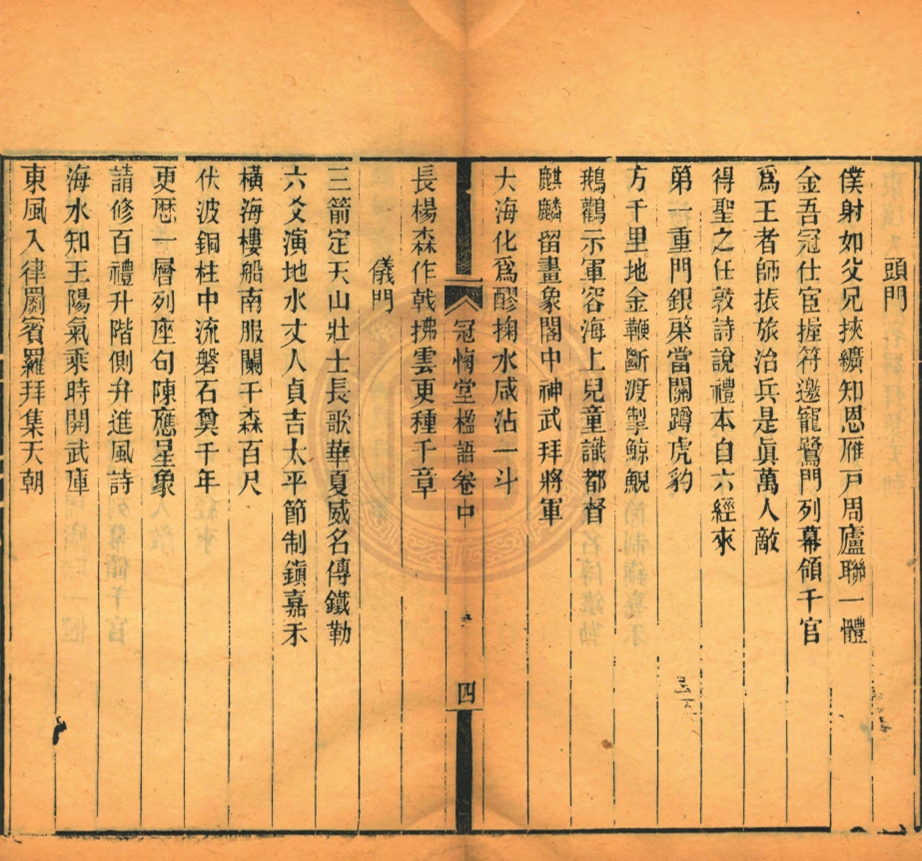 頭門
僕射如父兄挾纊知恩雁戸周廬聯一體
金吾冠仕宦握符邀寵鷺門列幕領千官
爲王者師振旅治兵是眞萬人敵
得聖之任敦詩說禮本自六經來
第一重門銀棨當關蹲虎豹
方千里地金鞭斷渡掣鯨鯢
鵝鸛示軍容海上兒童識都督
麒麟留畫象閣中神武拜將軍
大海化爲醪掬水咸沾一斗
冠悔堂楹語卷中
四
長楊森作戟拂雲更種千章
儀門
三箭定天山壯士長歌華夏威名傳鐵勒
六爻演地水丈人貞吉太平節制鎮嘉禾
橫海樓船南服闌干森百尺
伏波銅柱中流磐石奠千年
更歷一層列座句陳應星象
請修百禮升階側弁進風詩
海水知王陽氣乘時開武庫
東風入律罽賓羅拜集天朝